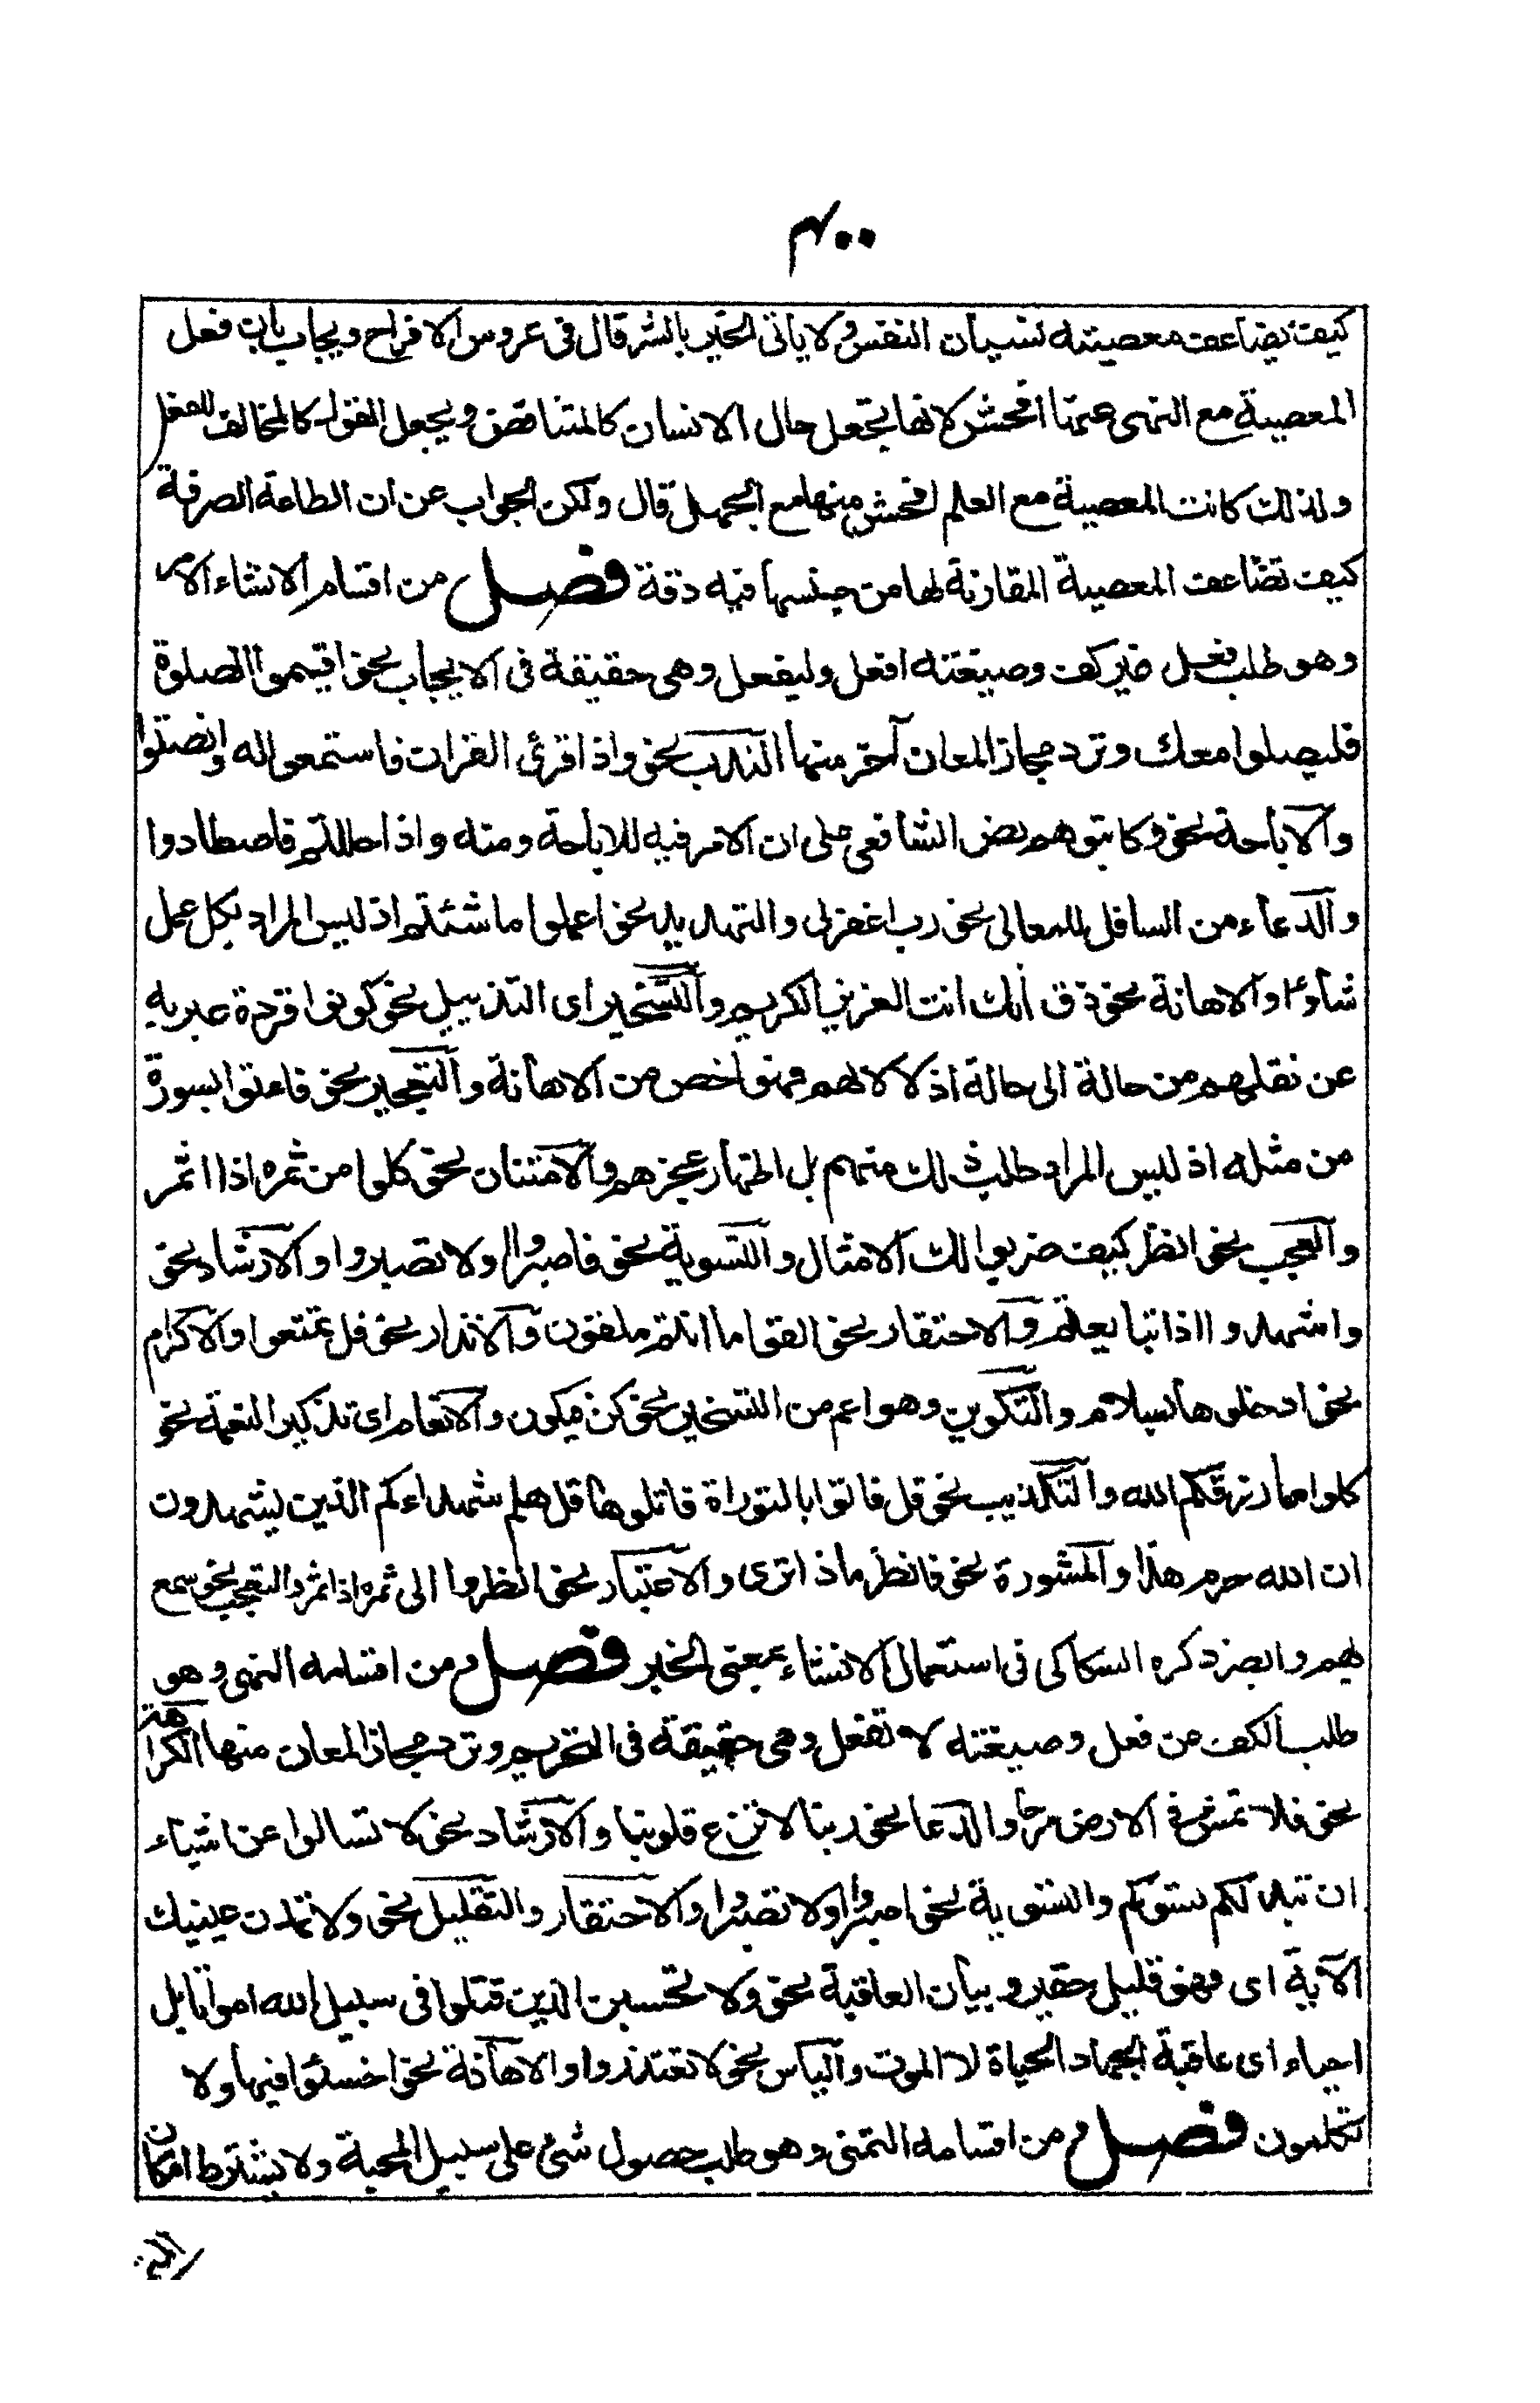 ٤٠٠
كيف تضاعف معصيته نسيان النفس ولا ياتى الخير بالشر قال فى عروس الافراح ويجاب بان فعل
المعصية مع النهى عنها افحش لانها تجعل حال الانسان كالمتناقض ويجعل القول كالمخالف للفعل
ولذلك كانت المعصية مع العلم افحش منها مع الجهل قال ولكن الجواب عن ان الطاعة الصرفة
كيف تضاعف المعصية المقارنة لها من جنسها فيه دقة فصل من اقسام الانشاء الامر
وهو طلب فعل غير كف وصيغته افعل وليفعل وهى حقيقة فى الايجاب نحو اقيموا الصلوة
فليصلوا معك وترد مجازا لمعان آخر منها الندب نحو واذا قرئ القران فاستمعوا له وانصتوا
والاباحة نحو فكاتبوهم نص الشافعى على ان الامر فيه للاباحة ومنه واذا حللتم فاصطادوا
والدعاء من السافل للعالى نحو رب اغفر لى والتهديد نحو اعملوا ما شئتم اذ ليس المراد بكل عمل
شاؤا والاهانة نحو ذق انك انت العزيز الكريم والتسخير اى التذليل نحو كونوا قردة عبر به
عن نقلهم من حالة الى حالة اذلالا لهم فهو اخص من الاهانة والتعجيز نحو فاءتوا بسورة
من مثله اذ ليس المراد طلب ذلك منهم بل اظهار عجزهم والامتنان نحو كلوا من ثمره اذا اثمر
والعجب نحو انظر كيف ضربوا لك الامثال والتسوية نحو فاصبروا او لا تصبروا والارشاد نحو
واشهدوا اذا تبايعتم والاحتقار نحو القوا ما انتم ملقون والانذار نحو قل تمتعوا والاكرام
نحو ادخلوها بسلام والتكوين وهو اعم من التسخير نحو كن فيكون والانعام اى تذكير النعمة نحو
كلوا مما رزقكم الله والتكذيب نحو قل فاتوا بالتوراة فاتلوها قل هلم شهداءكم الذين يشهدون
ان الله حرم هذا والمشورة نحو فانظر ماذا ترى والاعتبار نحو انظروا الى ثمره اذا اثمر والتعجب نحو اسمع
لهم وابصر ذكره السكاكى فى استعمال الانشاء بمعنى الخبر فصل ومن اقسامه النهى وهو
طلب الكف عن فعل وصيغته لا تفعل وهى حقيقة فى التحريم وترد مجازا لمعان منها الكراهة
نحو فلا تمش فى الارض مرحا والدعا نحو ربنا لا تزغ قلوبنا والارشاد نحو لا تسالوا عن اشياء
ان تبد لكم تسؤكم والتسوية نحو اصبروا او لا تصبروا والاحتقار والتقليل نحو ولا تمدن عينيك
الآية اى فهو قليل حقير وبيان العاقبة نحو ولا تحسبن الذين قتلوا فى سبيل الله امواتا بل
احياء اى عاقبة الجهاد الحياة لا الموت والياس نحو لا تعتذروا والاهانة نحو اخسئوا فيها ولا
تكلمون فصل ومن اقسامه التمنى وهو طلب حصول شئ على سبيل المحبة ولا يشترط امكان